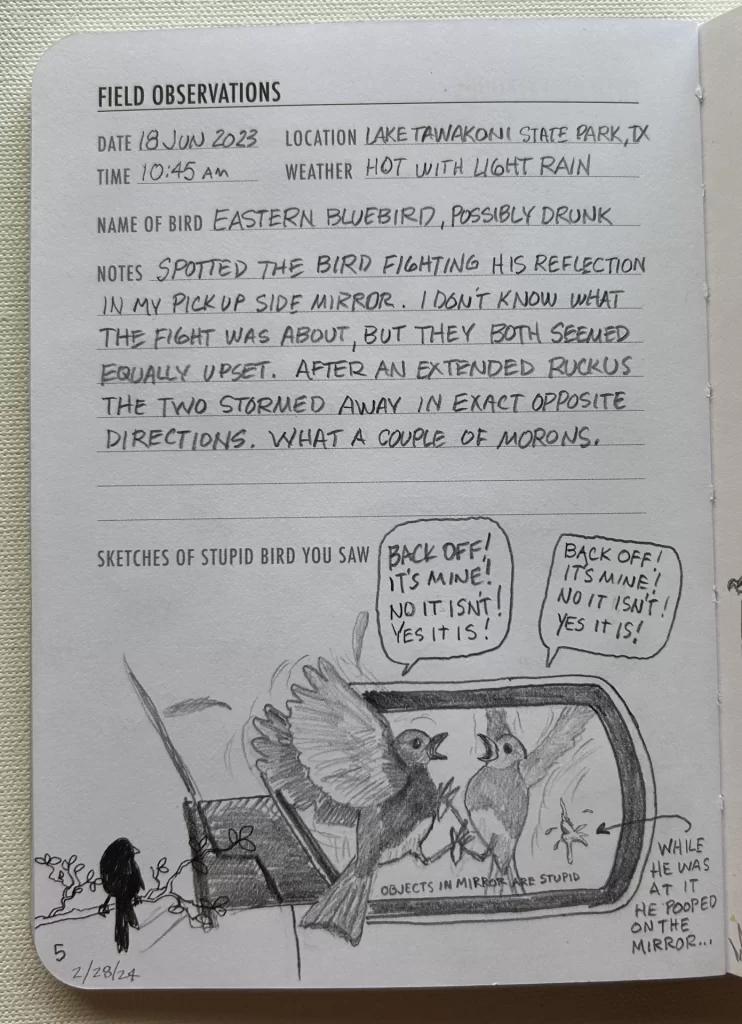 FIELD OBSERVATIONS
DATE 18 JUN 2023 LOCATION LAKE TAWAKONI STATE PARK, TX
TIME 10:45 AM WEATHER HOT WITH LIGHT RAIN
NAME OF BIRD EASTERN BLUEBIRD, POSSIBLY DRUNK
NOTES SPOTTED THE BIRD FIGHTING HIS REFLECTION
IN MY PICKUP SIDE MIRROR. I DON'T KNOW WHAT
THE FIGHT WAS ABOUT, BUT THEY BOTH SEEMED
EQUALLY UPSET. AFTER AN EXTENDED RUCKUS
THE TWO STORMED AWAY IN EXACT OPPOSITE
DIRECTIONS. WHAT A COUPLE OF MORONS.
SKETCHES OF STUPID BIRD YOU SAW
BACK OFF!
IT'S MINE!
NO IT ISN'T!
YES IT IS!
BACK OFF!
IT'S MINE!
NO IT ISN'T!
YES IT IS!
OBJECTS IN MIRROR ARE STUPID
WHILE
HE WAS
AT IT
HE POOPED
ON THE
MIRROR...
5
2/28/24